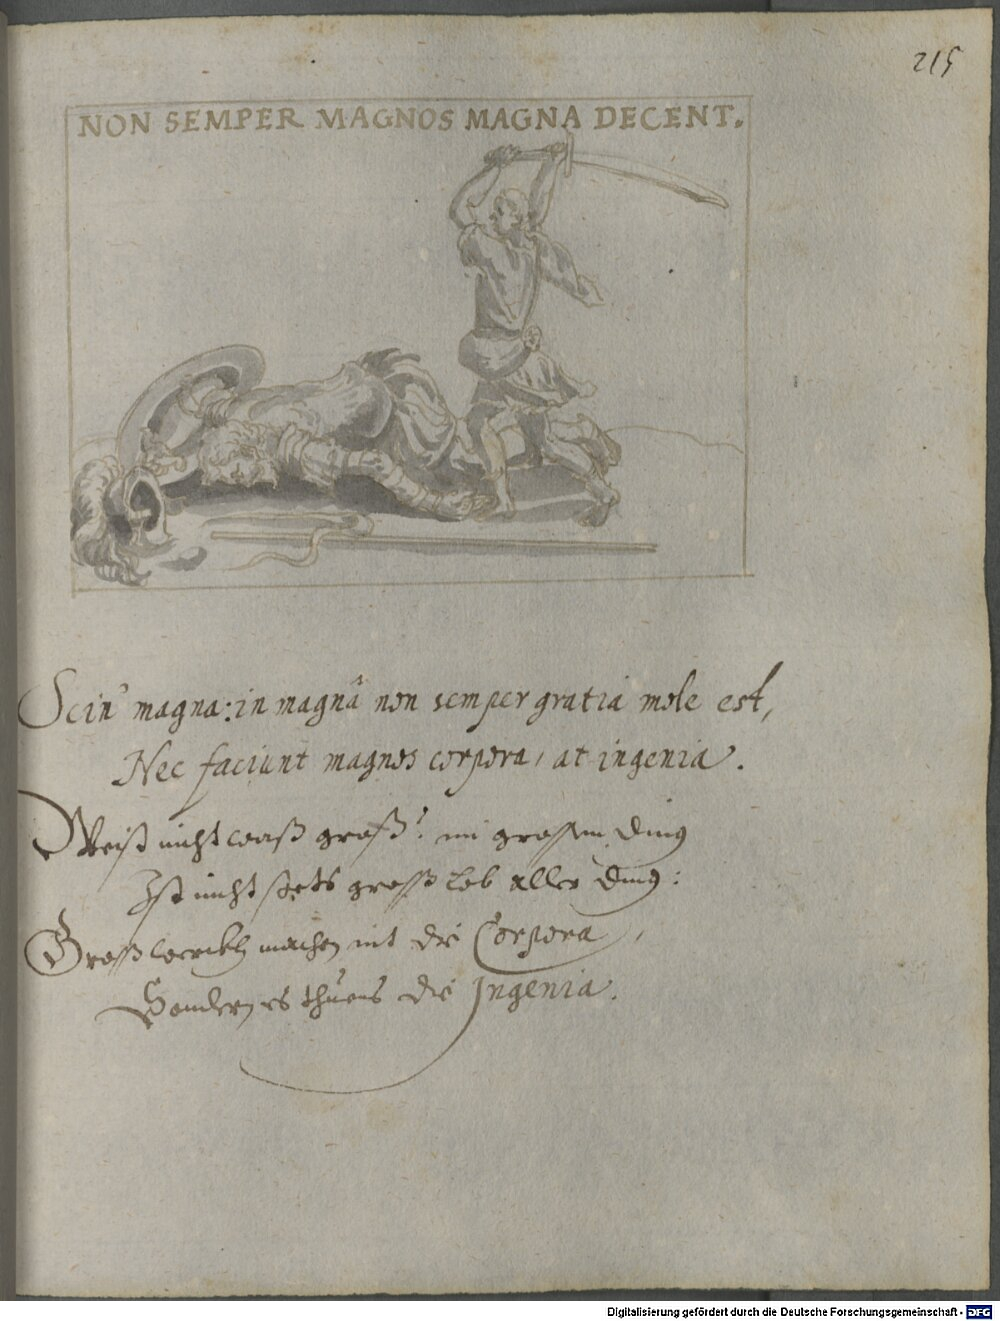 215
NON SEMPER MAGNOS MAGNA DECENT.
Scin' magna: in magnâ non semper gratia mole est,
Nec faciunt magnos corpora, at ingenia.
Weist nicht waß groß? im grossen ding
Ist nicht stets groß lob aller ding:
Groß werckh machen nit die Corpora,
Sondern es thuens die Ingenia.
Digitalisierung gefördert durch die Deutsche Forschungsgemeinschaft - DFG